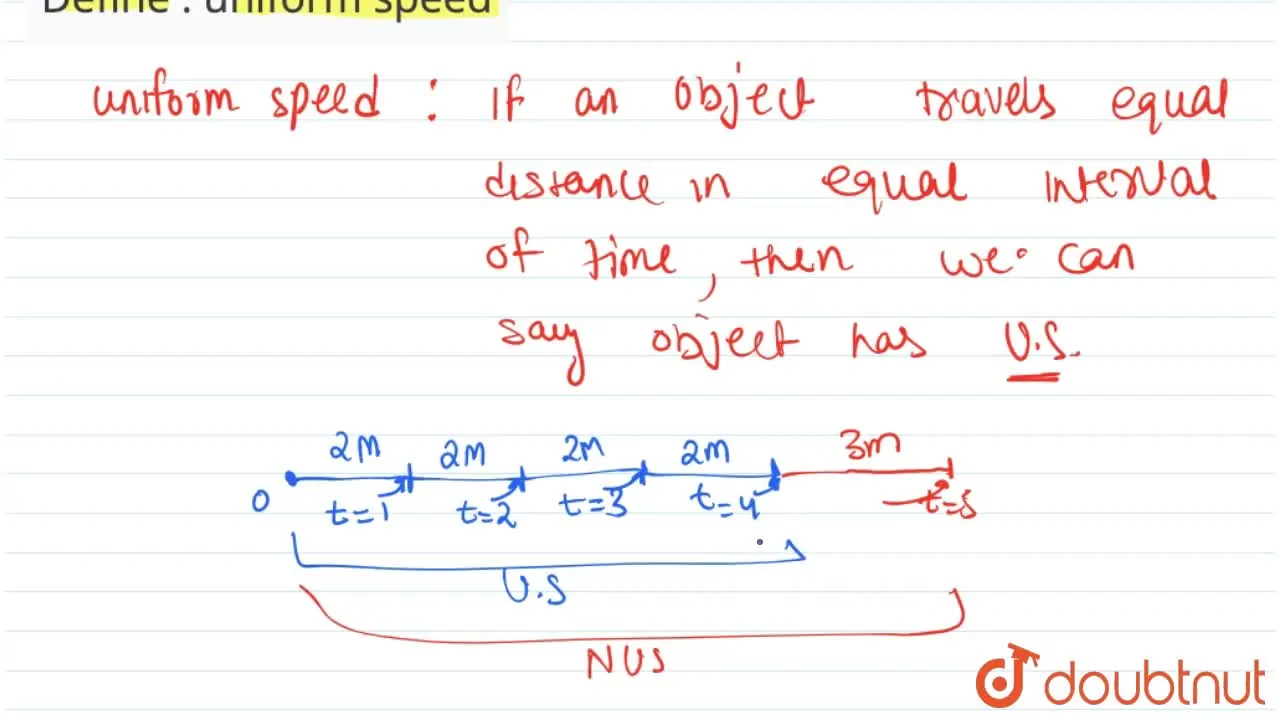 Define : uniform speed
uniform speed : If an object travels equal
distance in equal interval
of time, then we can
say object has U.S.
2M 2M 2M 2M 3m
0 t=1 t=2 t=3 t=4 t=5
U.S
NUS
doubtnut